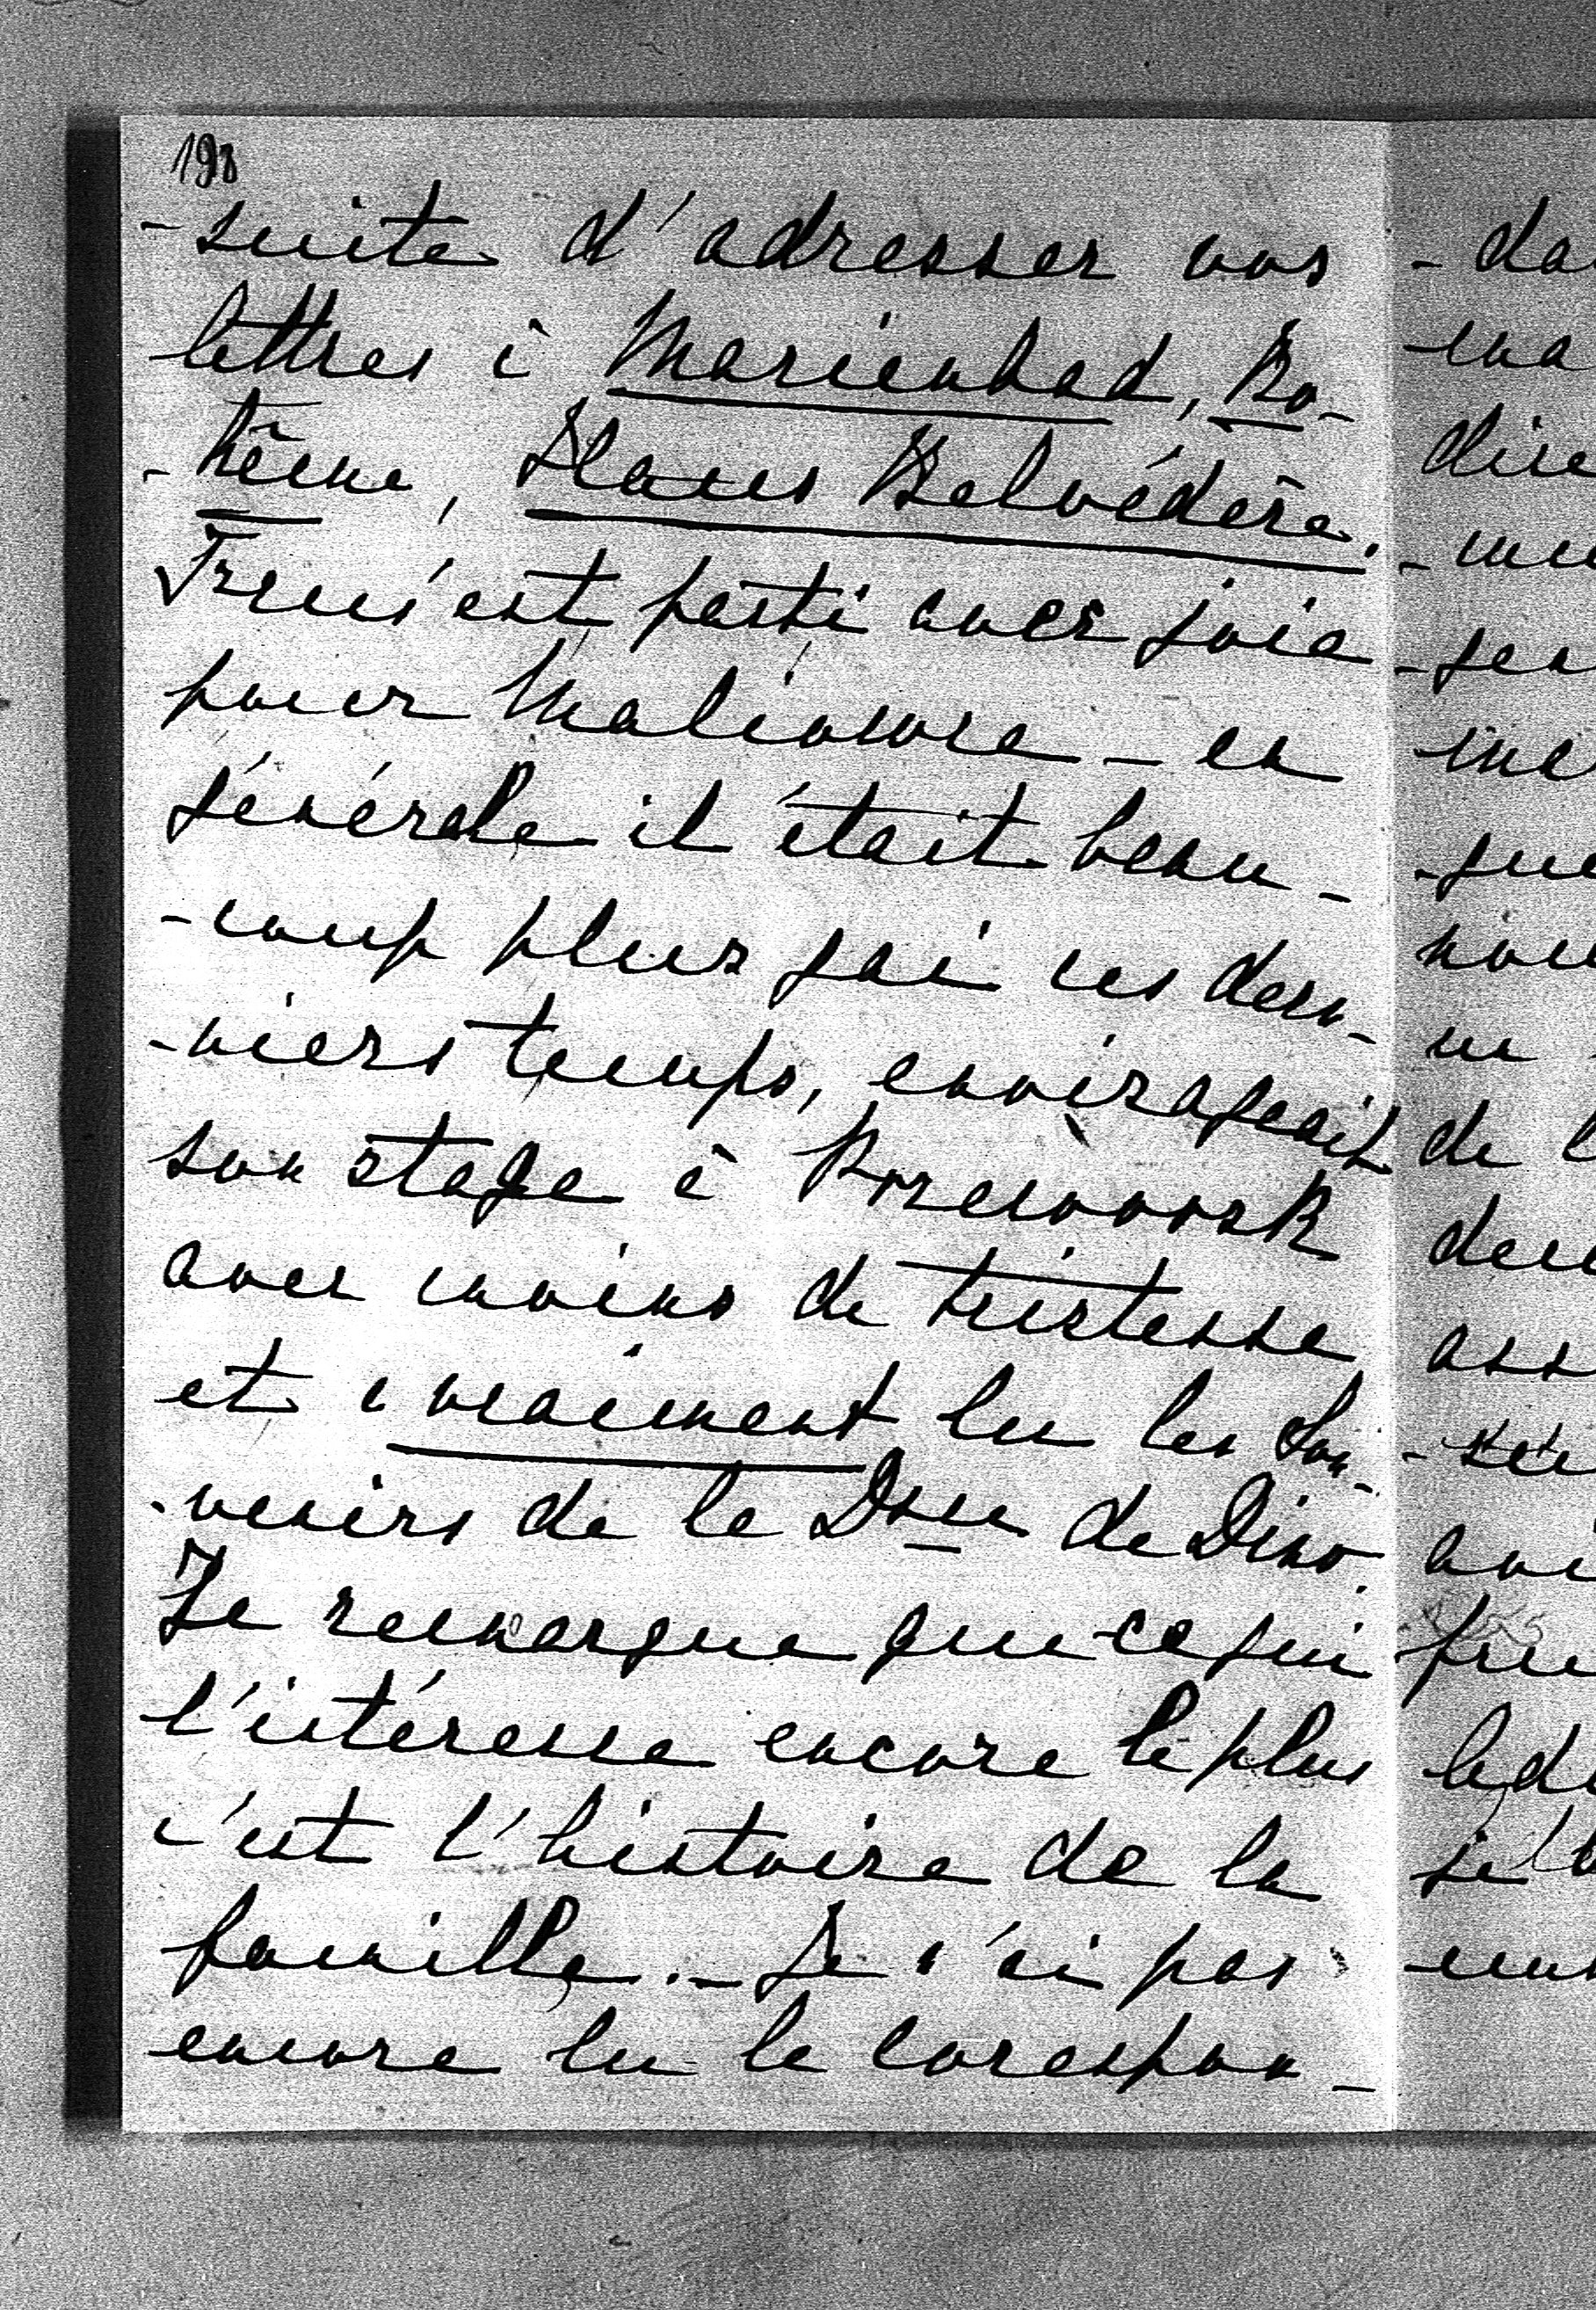 198
-suite d'adresser vos
lettres à Marienbad, Bo-
-hême, Haus Belvédère.
est parti avec joie
pour Malinowa - en
générale il était beau-
-coup plus gai ces der-
-niers temps, envisageait
son stage à Przeworsk
avec moins de tristesse
et a vraiment lu les Sou-
-venirs de la Dsse de Dino.
Je remarque que ce qui
l'intéresse encore le plus
c'est l'histoire de la
famille. - Je n'ai pas
encore lu la corespon-